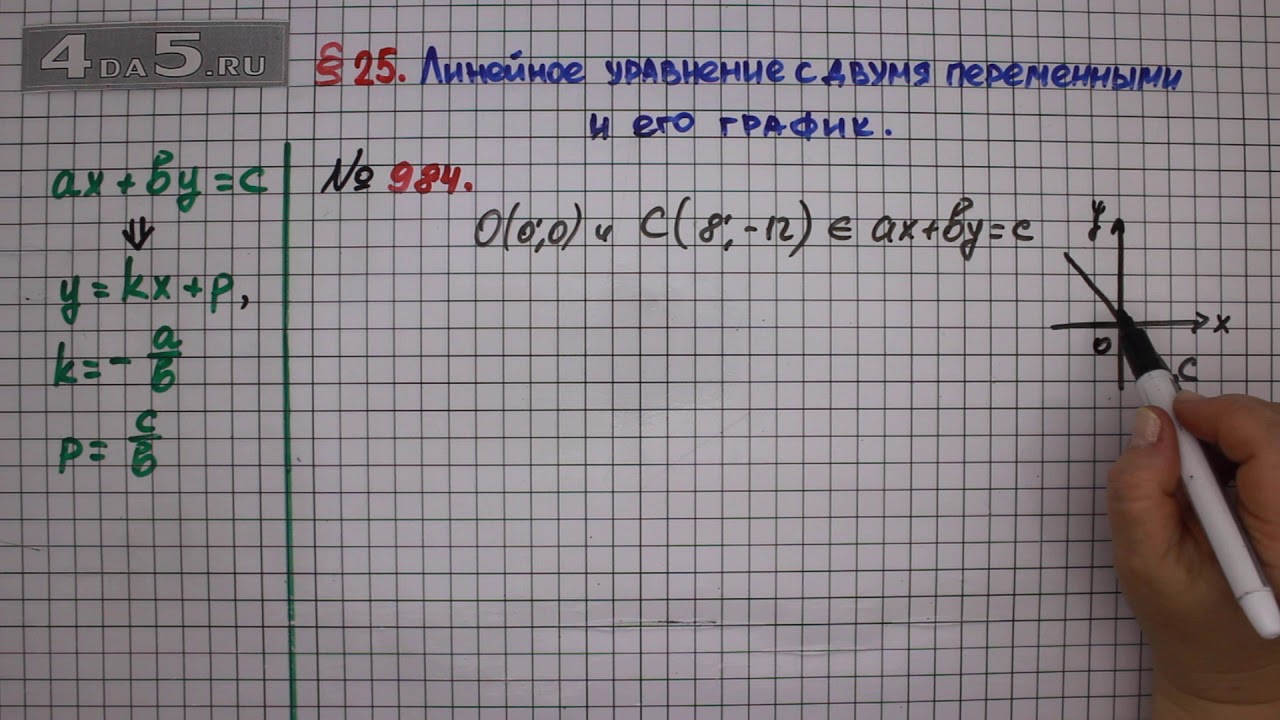 4DA5.RU
§ 25. Линейное уравнение с двумя переменными
и его график.
ax + by = c
⇓
y = kx + p,
k = - a/b
p = c/b
№ 984.
O(0;0) и C(8;-12) ∈ ax+by=c
y
x
O
C